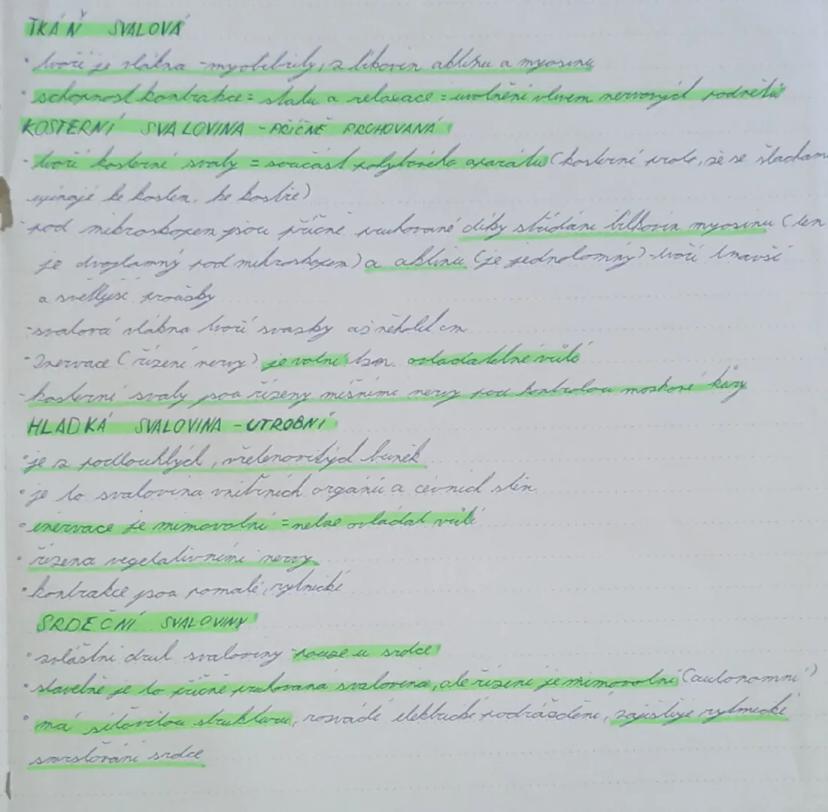 TKÁŇ SVALOVÁ
· tvoří je vlákna - myofibrily, z bílkovin aktinu a myosinu
· schopnost kontrakce = stahu a relaxace = uvolnění vlivem nervových podnětů
KOSTERNÍ SVALOVINA - PŘÍČNĚ PRUHOVANÁ
- tvoří kosterní svaly = součást pohybového aparátu (kosterní proto, že se šlachami
upínají ke kostem, ke kostře)
- pod mikroskopem jsou příčně pruhované díky střídání bílkovin myosinu (ten
je dvojlomný pod mikroskopem) a aktinu (je jednolomný) - tvoří tmavší
a světlejší proužky
- svalová vlákna tvoří svazky až několik cm
- Inervace (řízení nervy) je volní tzn. ovladatelné vůlí
- kosterní svaly jsou řízeny míšními nervy pod kontrolou mozkové kůry
HLADKÁ SVALOVINA - ÚTROBNÍ
· je z podlouhlých, vřetenovitých buněk
· je to svalovina vnitřních orgánů a cévních stěn
· inervace je mimovolní = nelze ovládat vůlí
· řízena vegetativními nervy
· kontrakce jsou pomalé, rytmické
SRDEČNÍ SVALOVINY
· zvláštní druh svaloviny pouze u srdce
· stavebně je to příčně pruhovaná svalovina, ale řízení je mimovolní (autonomní)
· má síťovitou strukturu, rozvádí elektrické podráždění, zajišťuje rytmické
smršťování srdce